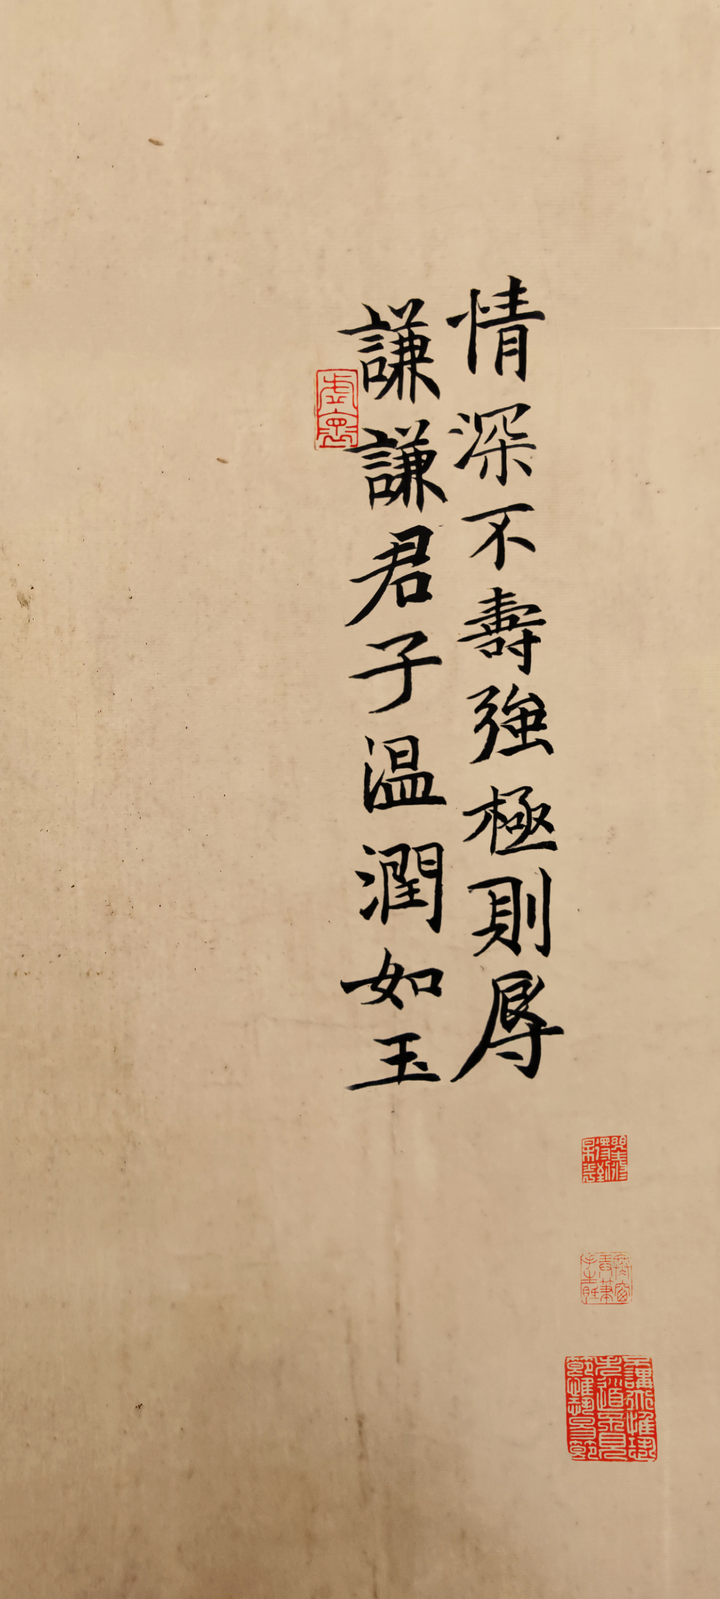 情深不壽強極則辱
謙謙君子温潤如玉